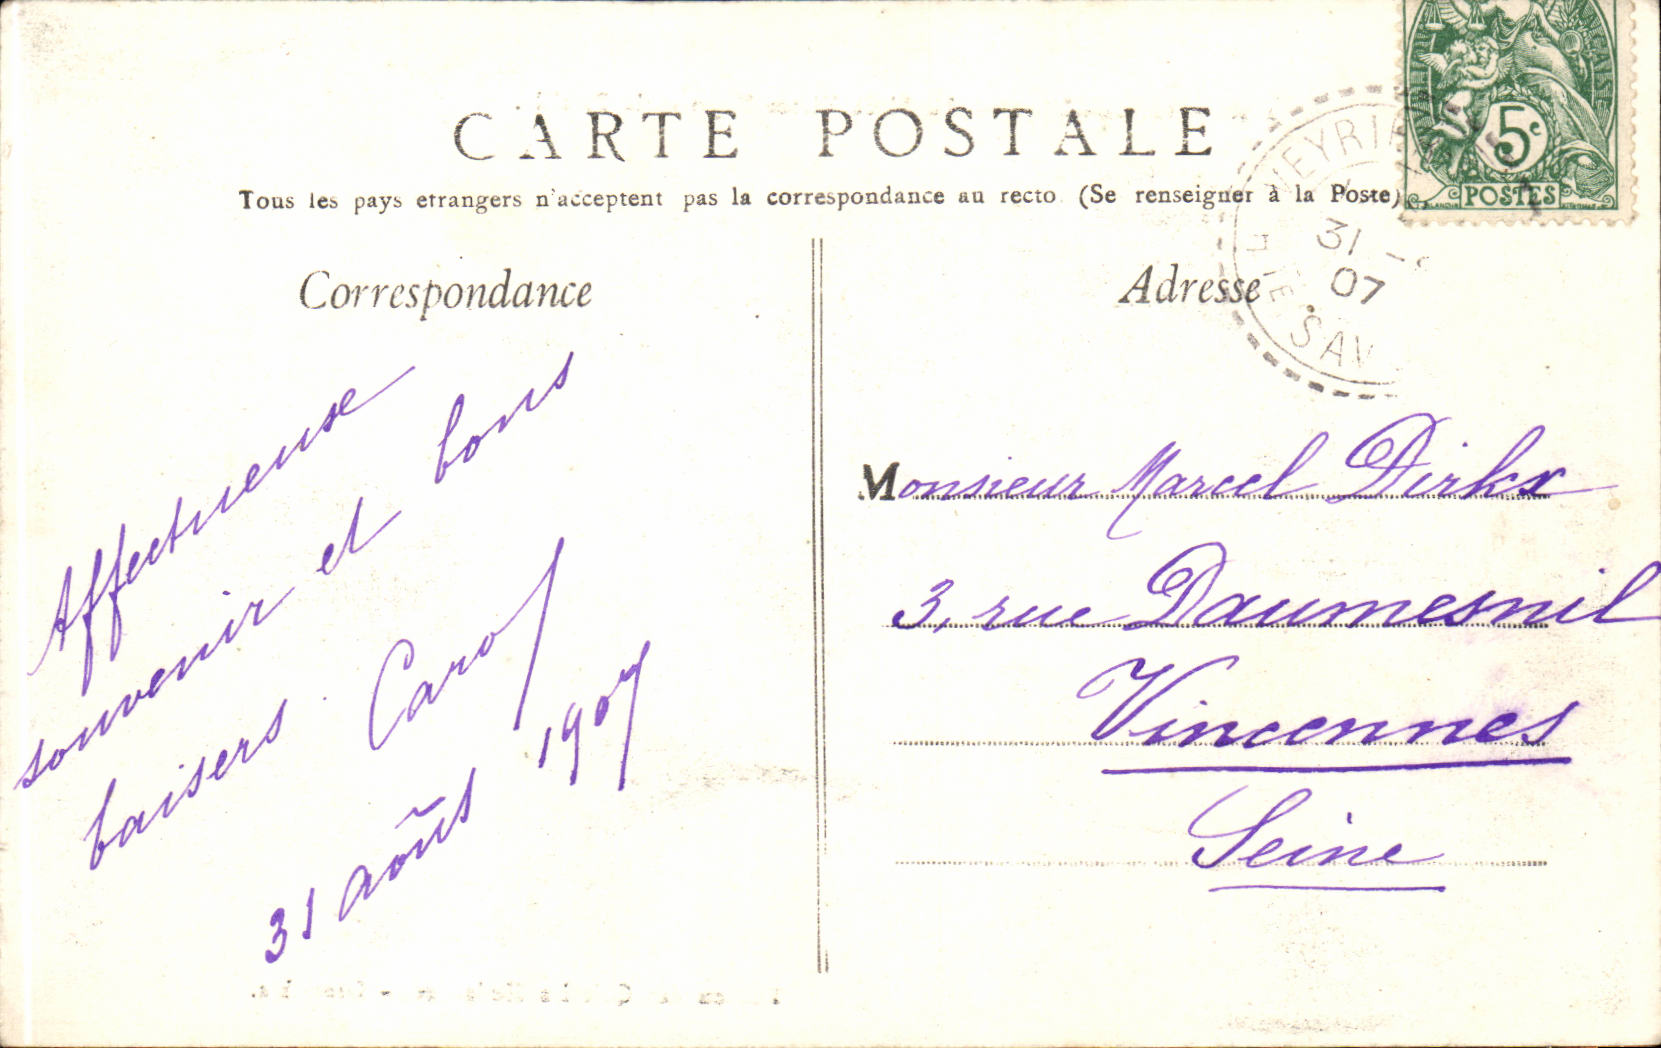 CARTE POSTALE
Tous les pays etrangers n'acceptent pas la correspondance au recto (Se renseigner à la Poste)
Correspondance
Adresse
5c
POSTES
VEYRI
31
07
SAV
Affectueuse
souvenir et bons
baisers Carol
31 août 1907
Monsieur Marcel Dirkx
3, rue Daumesnil
Vincennes
Seine